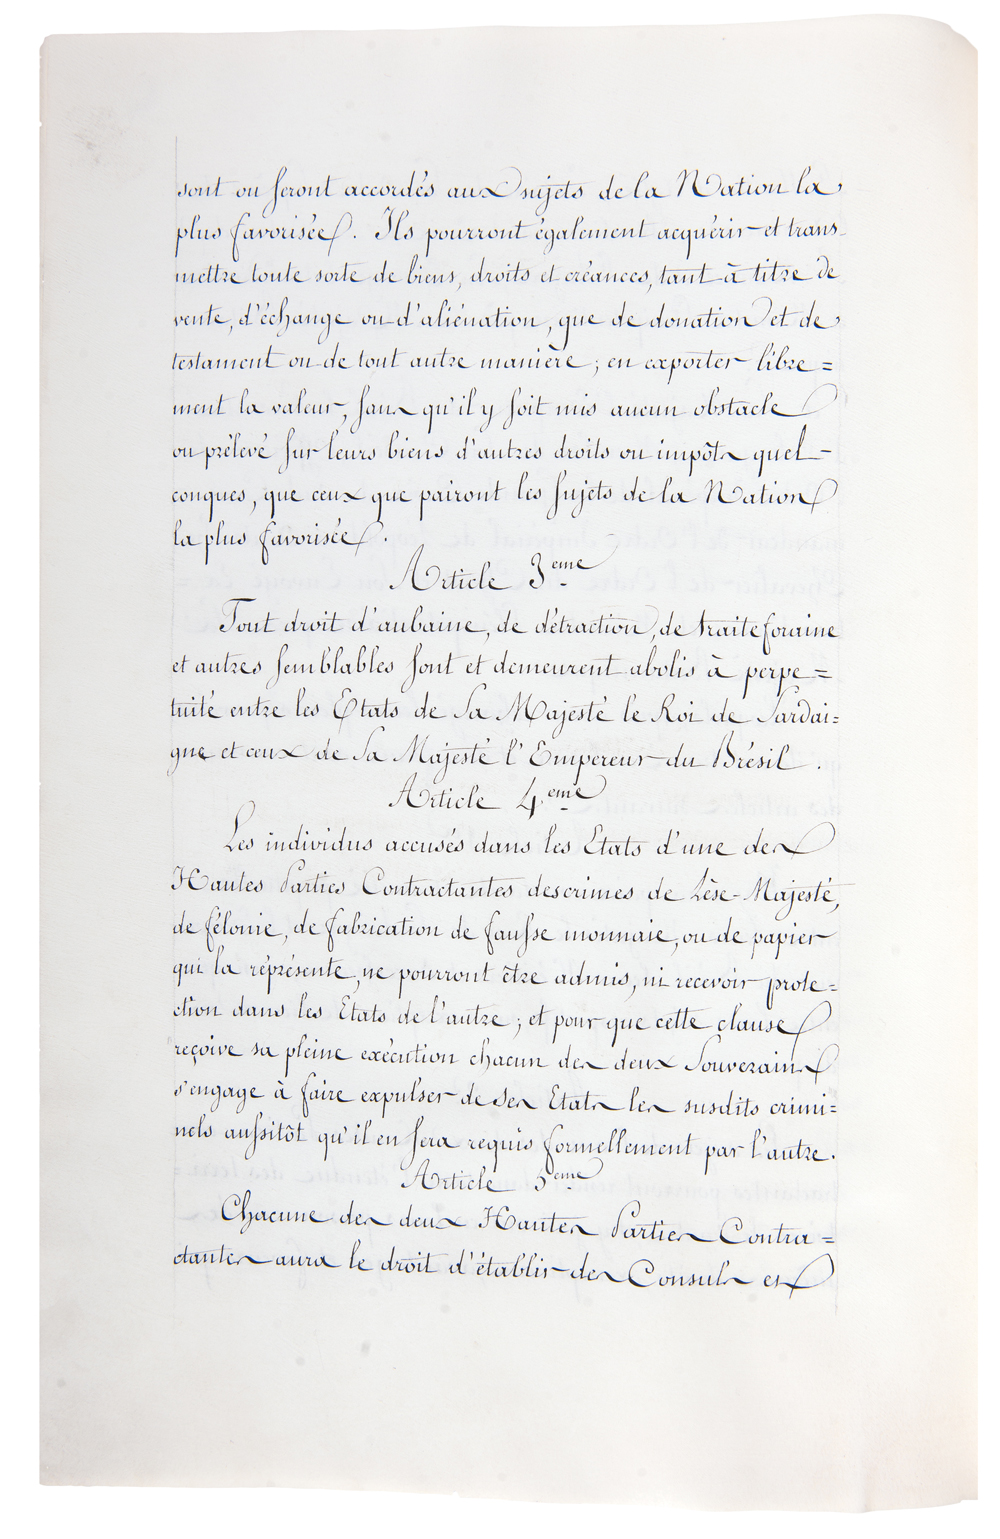 sont ou seront accordés aux sujets de la Nation la
plus favorisée. Ils pourront également acquérir et trans-
mettre toute sorte de biens, droits et créances, tant à titre de
vente, d'échange ou d'aliénation, que de donation et de
testament ou de tout autre manière ; en exporter libre=
ment la valeur, sans qu'il y soit mis aucun obstacle
ou prélevé sur leurs biens d'autres droits ou impôts quel-
conques, que ceux que pairont les sujets de la Nation
la plus favorisée.
Article 3eme
Tout droit d'aubaine, de détraction, de traite foraine
et autres semblables sont et demeurent abolis à perpe=
tuité entre les Etats de Sa Majesté le Roi de Sardai=
gne et ceux de Sa Majesté l'Empereur du Brésil.
Article 4eme
Les individus accusés dans les Etats d'une des
Hautes Parties Contractantes des crimes de Lèse-Majesté,
de félonie, de fabrication de fausse monnaie, ou de papier
qui la réprésente, ne pourront être admis, ni recevoir prote=
ction dans les Etats de l'autre ; et pour que cette clause
reçoive sa pleine exécution chacun des deux Souverains
s'engage à faire expulser de ses Etats les susdits crimi=
nels aussitôt qu'il en sera requis formellement par l'autre.
Article 5eme
Chacune des deux Hautes Parties Contra=
ctantes aura le droit d'établir des Consuls es